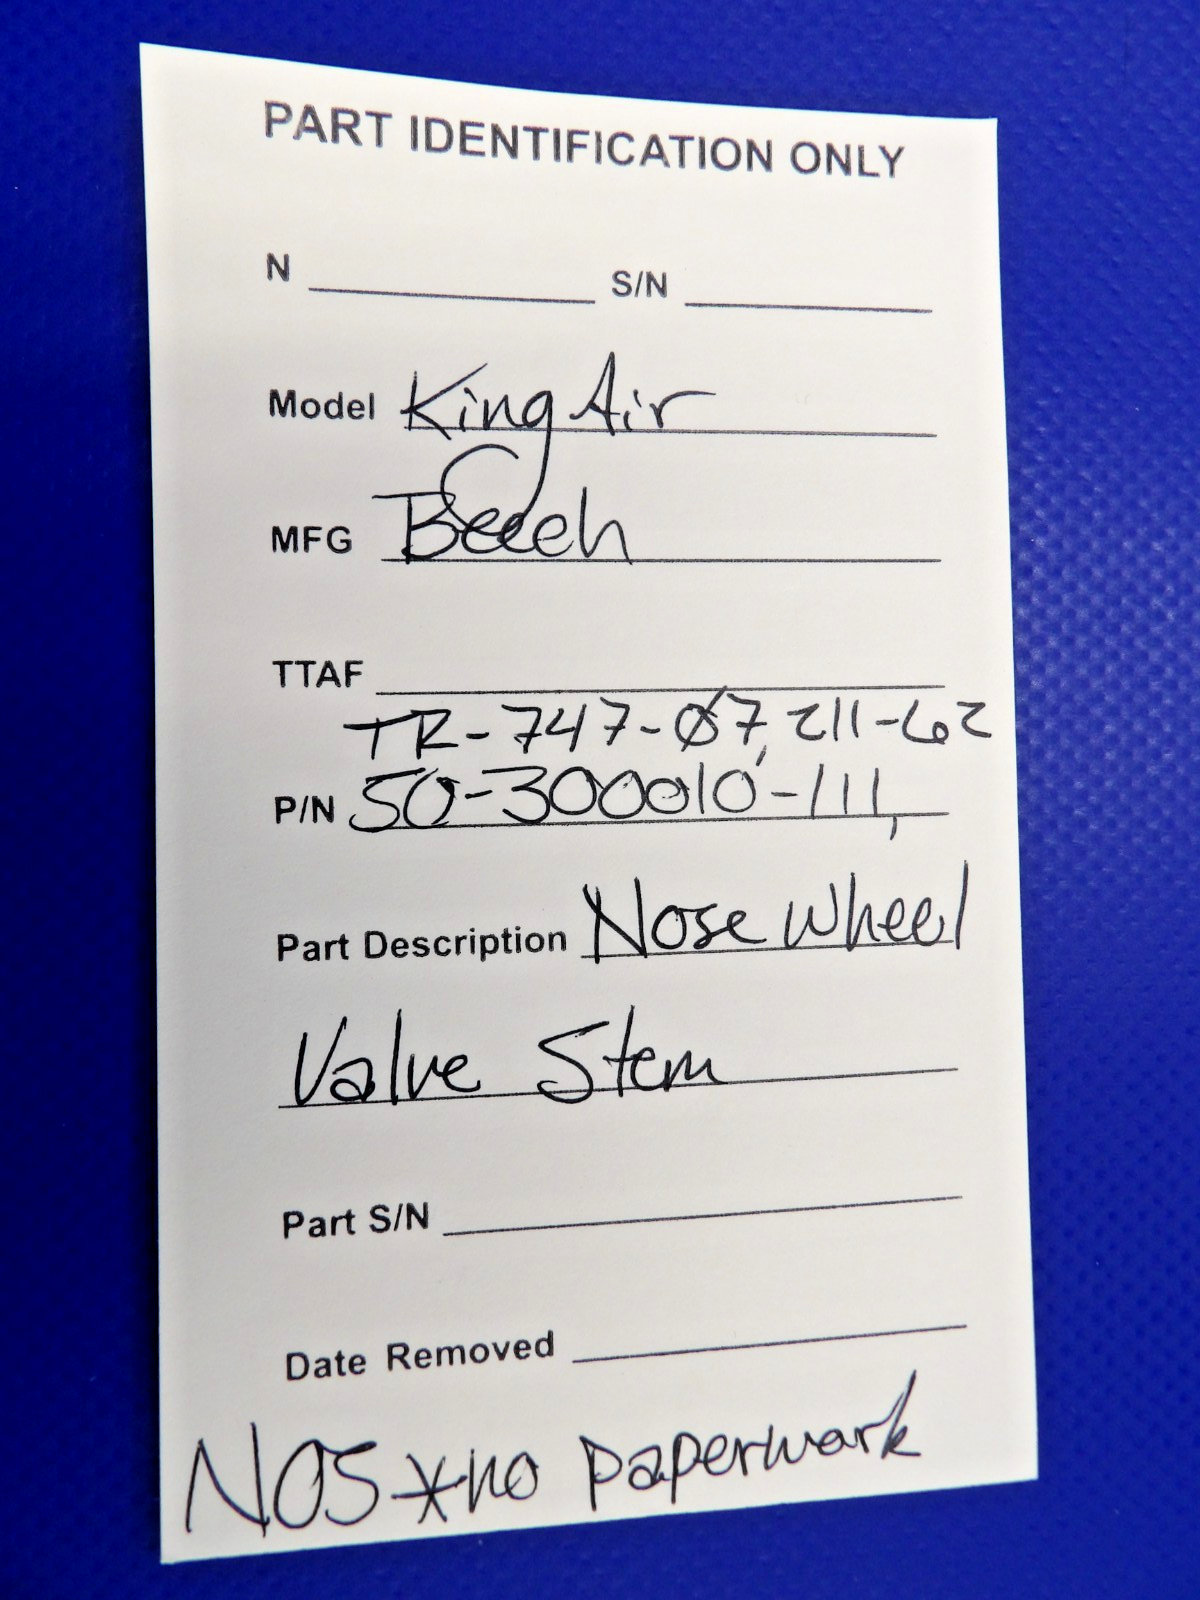 PART IDENTIFICATION ONLY
N S/N
Model King Air
MFG Beech
TTAF
TR-747-07, 211-62
P/N 50-300010-111,
Part Description Nose Wheel
Valve Stem
Part S/N
Date Removed
NOS *no paperwork